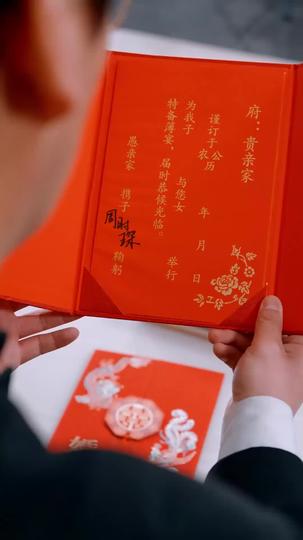 府：贵亲家
谨订于公历
农历 年 月 日
为我子 与您女 举行
特备薄宴，届时恭候光临。
愚亲家 携子 周时琛 鞠躬